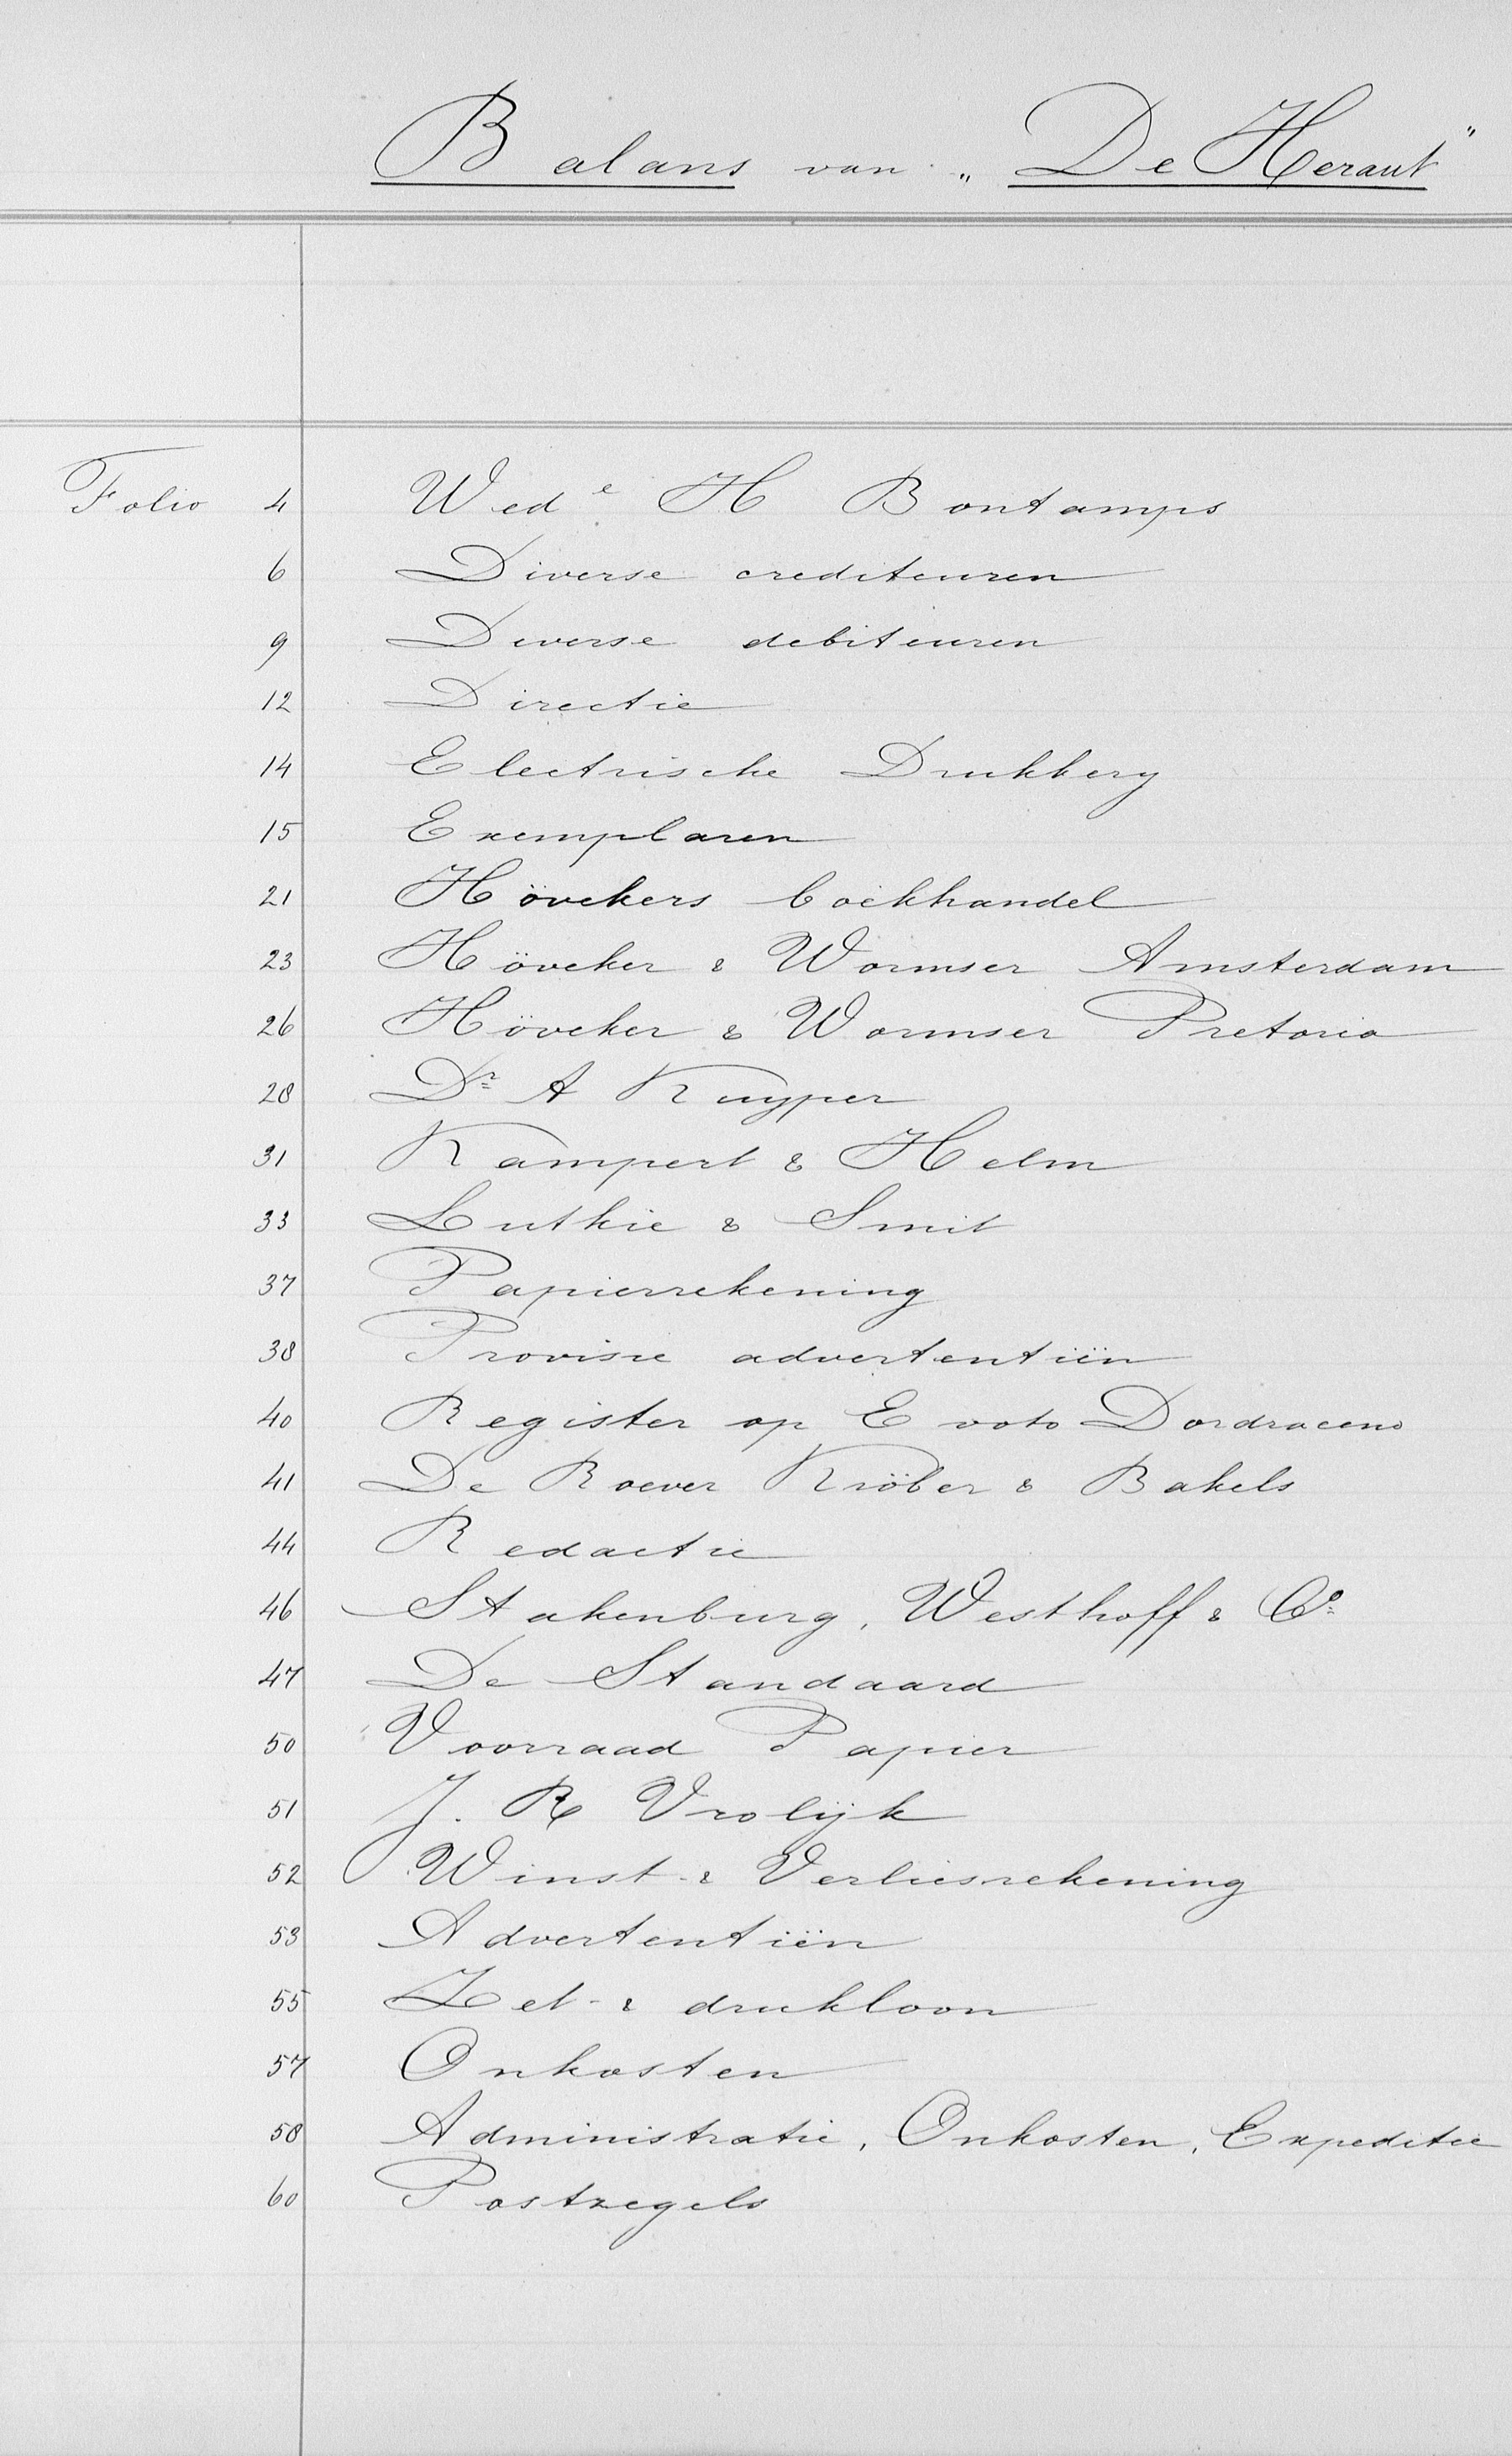 Balans van „De Heraut"
Folio 4 Wed^e H Bontamps
6 Diverse crediteuren
9 Diverse debiteuren
12 Directie
14 Electrische Drukkery
15 Exemplaren
21 Hövekers boekhandel
23 Höveker & Wormser Amsterdam
26 Höveker & Wormser Pretoria
28 Dr A Kuyper
31 Kampert & Helm
33 Luthie & Smit
37 Papierrekening
38 Provisie advertentiën
40 Register op E voto Dordraceno
41 De Roever Kröber & Bakels
44 Redactie
46 Stakenburg, Westhoff & Co
47 De Standaard
50 Voorraad Papier
51 J. R Vrolijk
52 Winst- & Verliesrekening
53 Advertentiën
55 Zet- & drukloon
57 Onkosten
58 Administratie, Onkosten, Expeditie
60 Postzegels